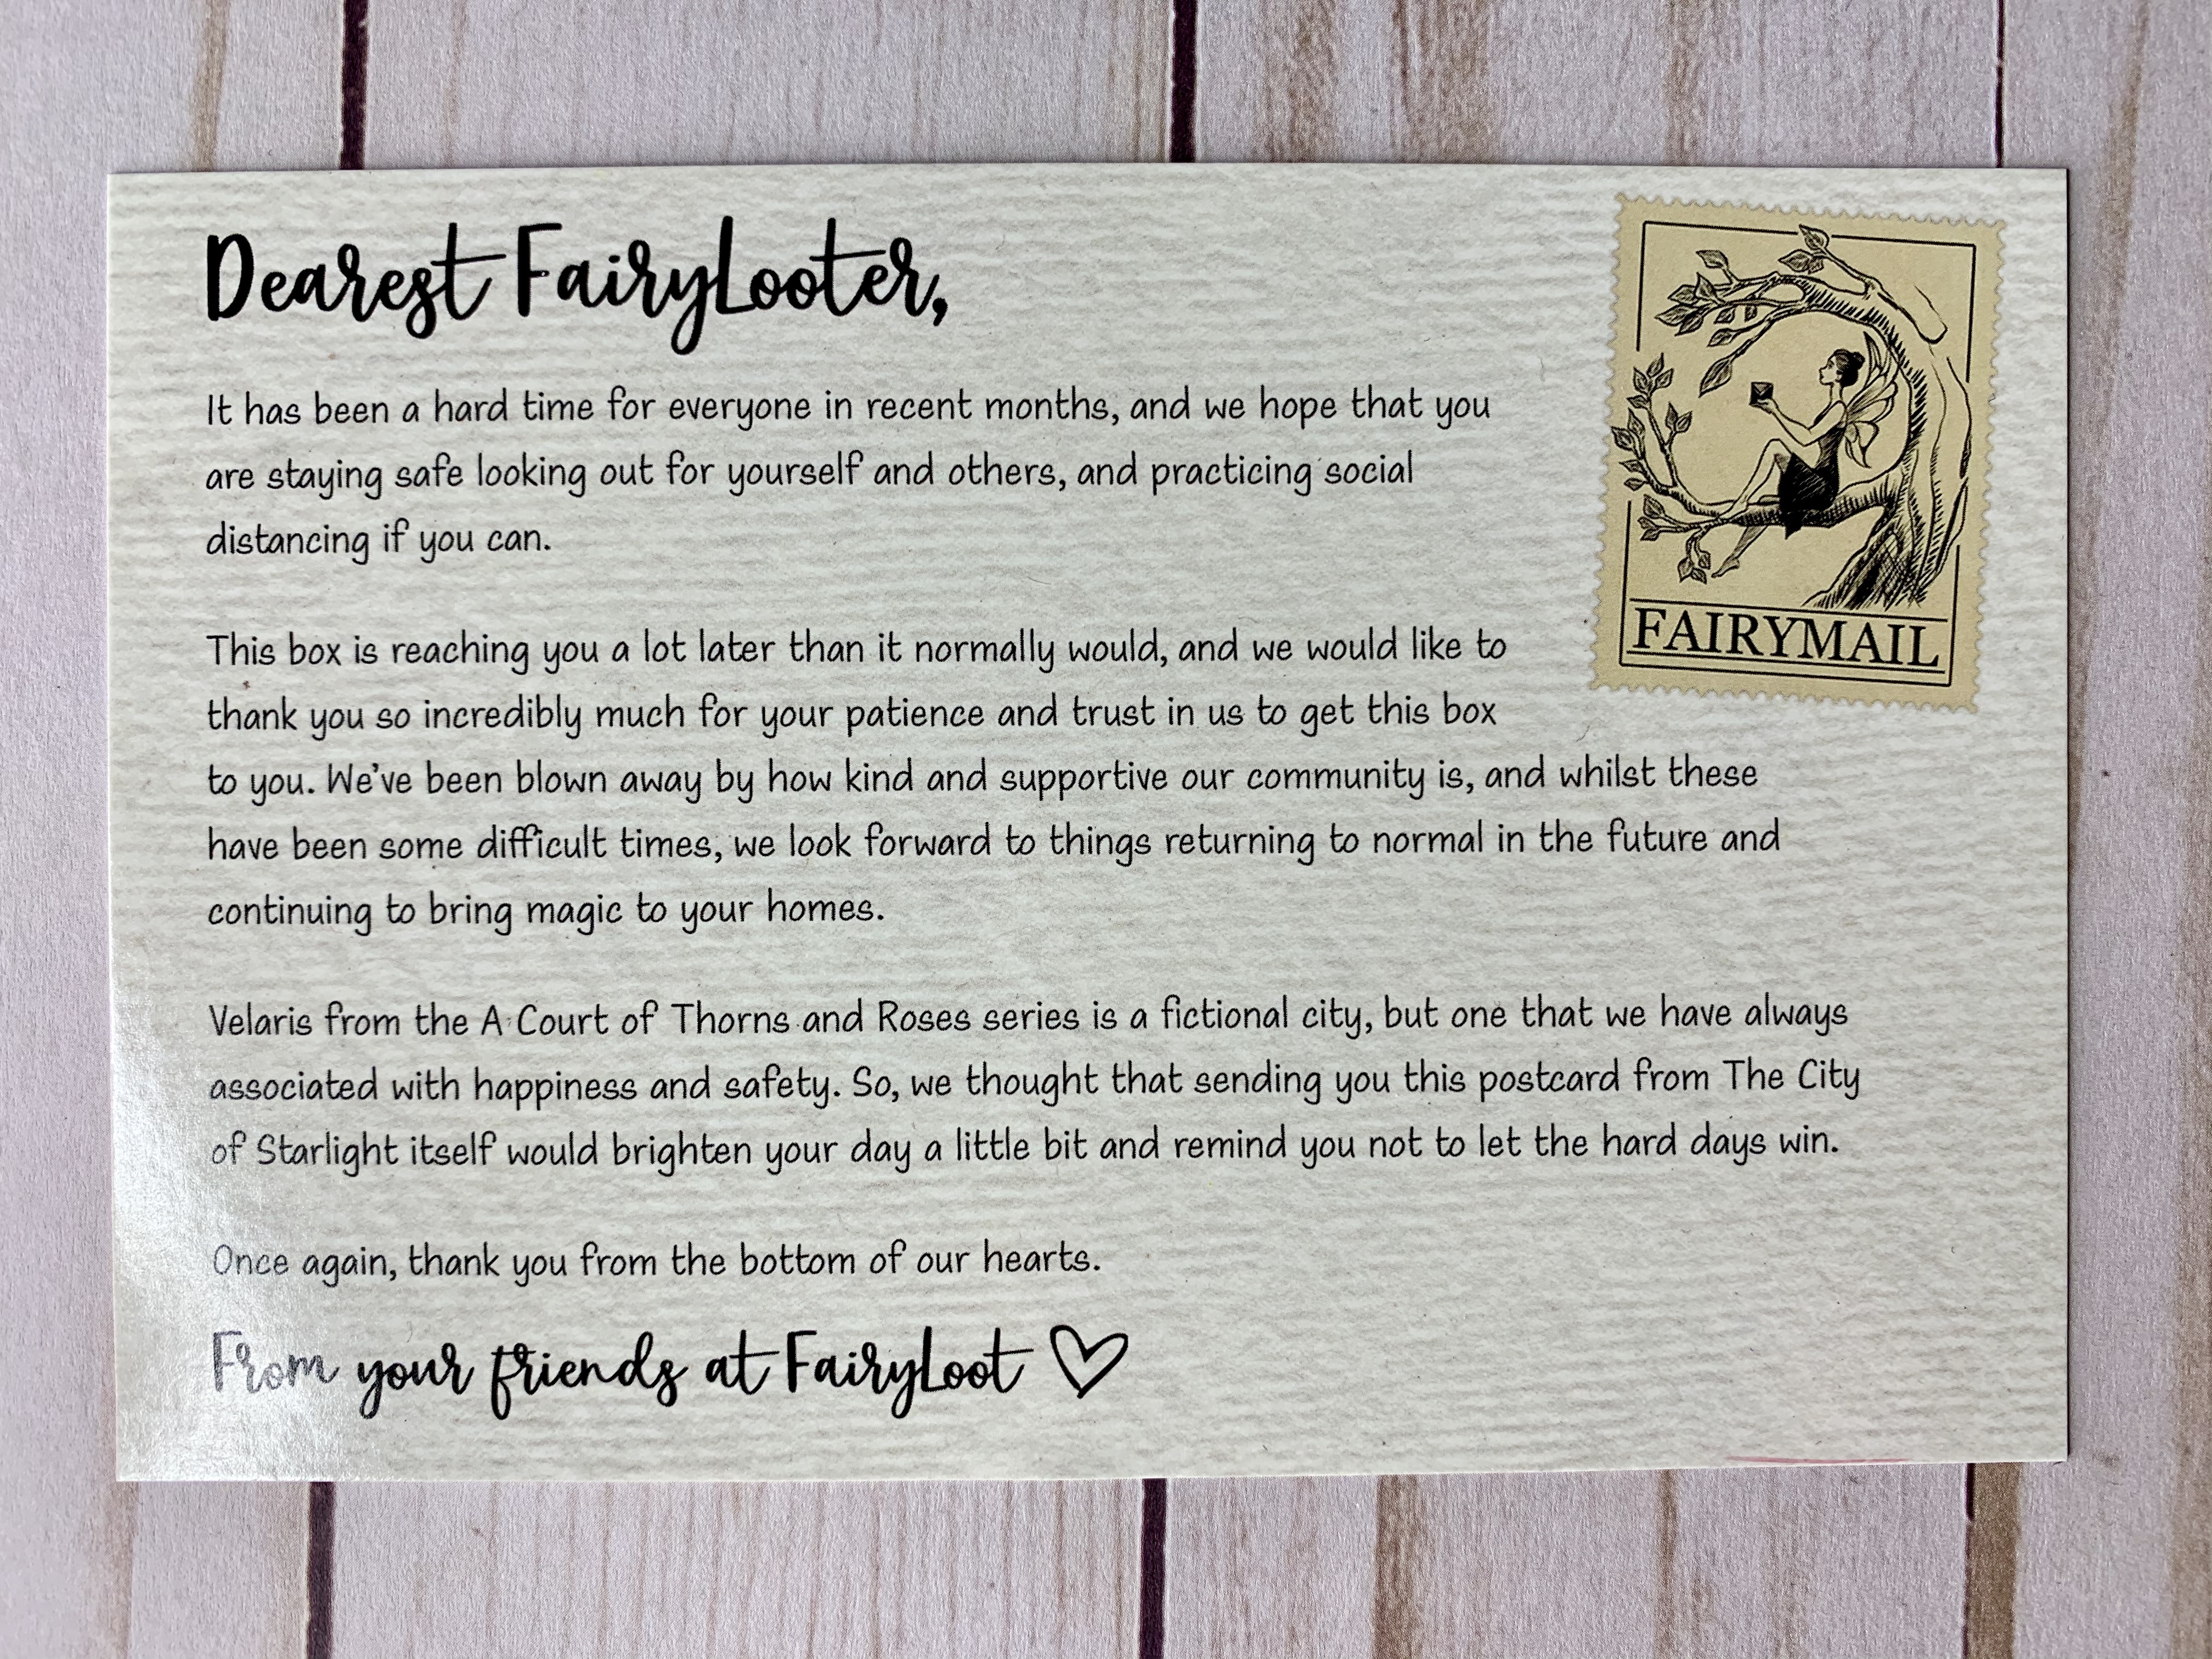 Dearest FairyLooter,
It has been a hard time for everyone in recent months, and we hope that you
are staying safe looking out for yourself and others, and practicing social
distancing if you can.
This box is reaching you a lot later than it normally would, and we would like to
thank you so incredibly much for your patience and trust in us to get this box
to you. We've been blown away by how kind and supportive our community is, and whilst these
have been some difficult times, we look forward to things returning to normal in the future and
continuing to bring magic to your homes.
Velaris from the A Court of Thorns and Roses series is a fictional city, but one that we have always
associated with happiness and safety. So, we thought that sending you this postcard from The City
of Starlight itself would brighten your day a little bit and remind you not to let the hard days win.
Once again, thank you from the bottom of our hearts.
From your friends at FairyLoot
FAIRYMAIL